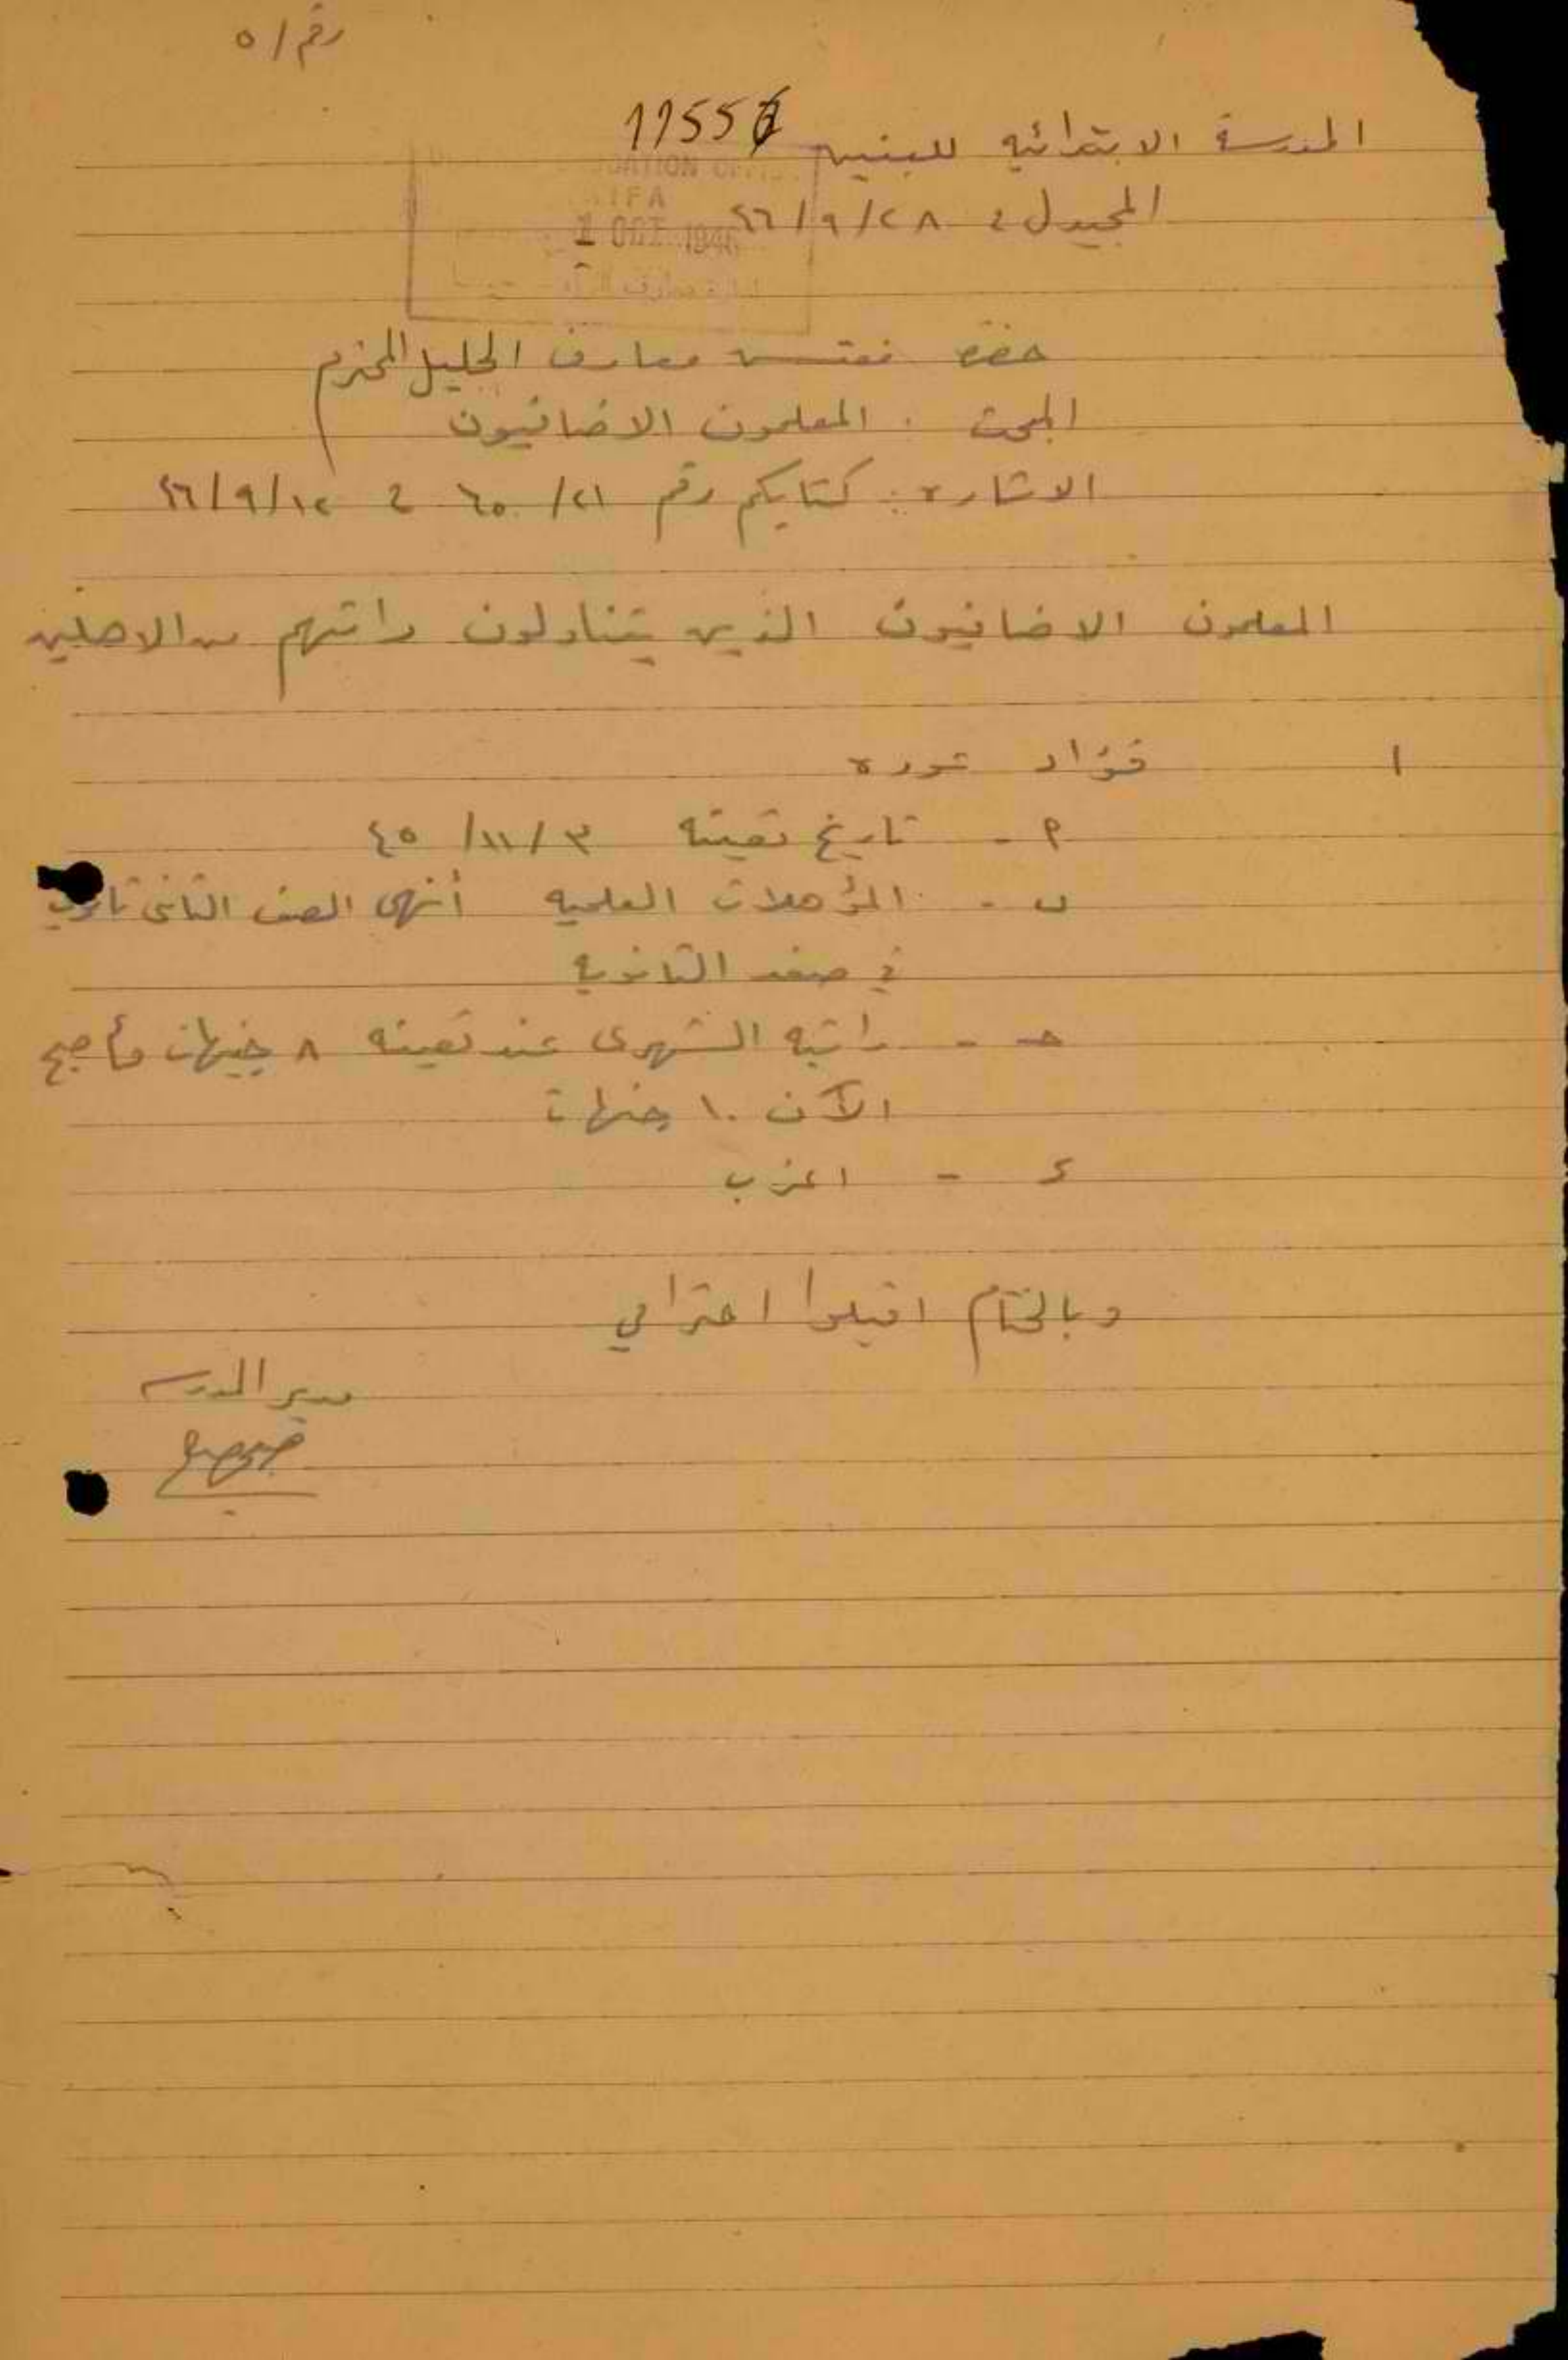 رقم / ٥
المدرسة الابتدائيه للبنين 11556
المجيدل في ٢٨/٩/٤٦
EDUCATION OFFICE
HAIFA
1 OCT 1946
حضرة مفتش معارف الجليل المحترم
المبحث : المعلمون الاضافيون
الاشاره : كتابكم رقم ٢١/ ٦٥ في ١٢/٩/٤٦
المعلمون الاضافيون الذين يتناولون راتبهم من الاهلين
١ فؤاد
أ - تاريخ تعينه ٣/ ١١/ ٤٥
ب - المؤهلات العلميه أنهى الصف الثاني ثانوي
في صفد الثانويه
حـ - راتبه الشهري عند تعينه ٨ جنيهات فأصبح
الآن ١٠ جنيهات
د - اعزب
وبالختام اقبلوا احترامي
مدير المدرسه